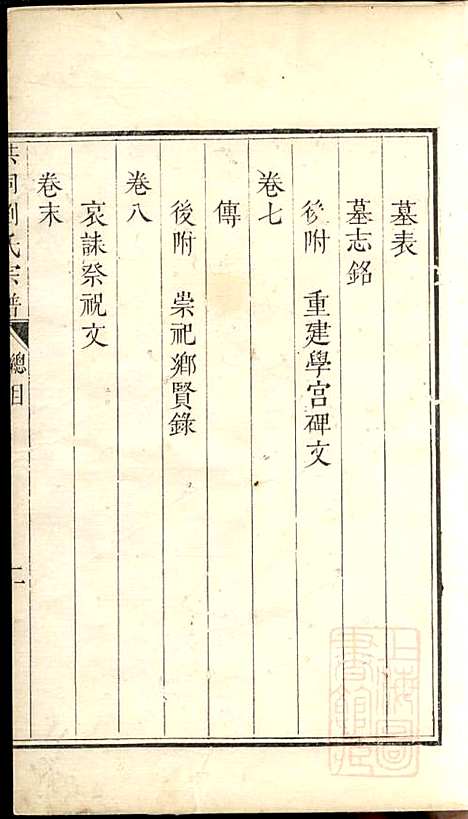 墓表
墓志銘
後附　重建學宫碑文
卷七
傳
後附　崇祀鄉賢錄
卷八
哀誄祭祝文
卷末
洪洞劉氏宗譜　總目　二
上海圖書館藏